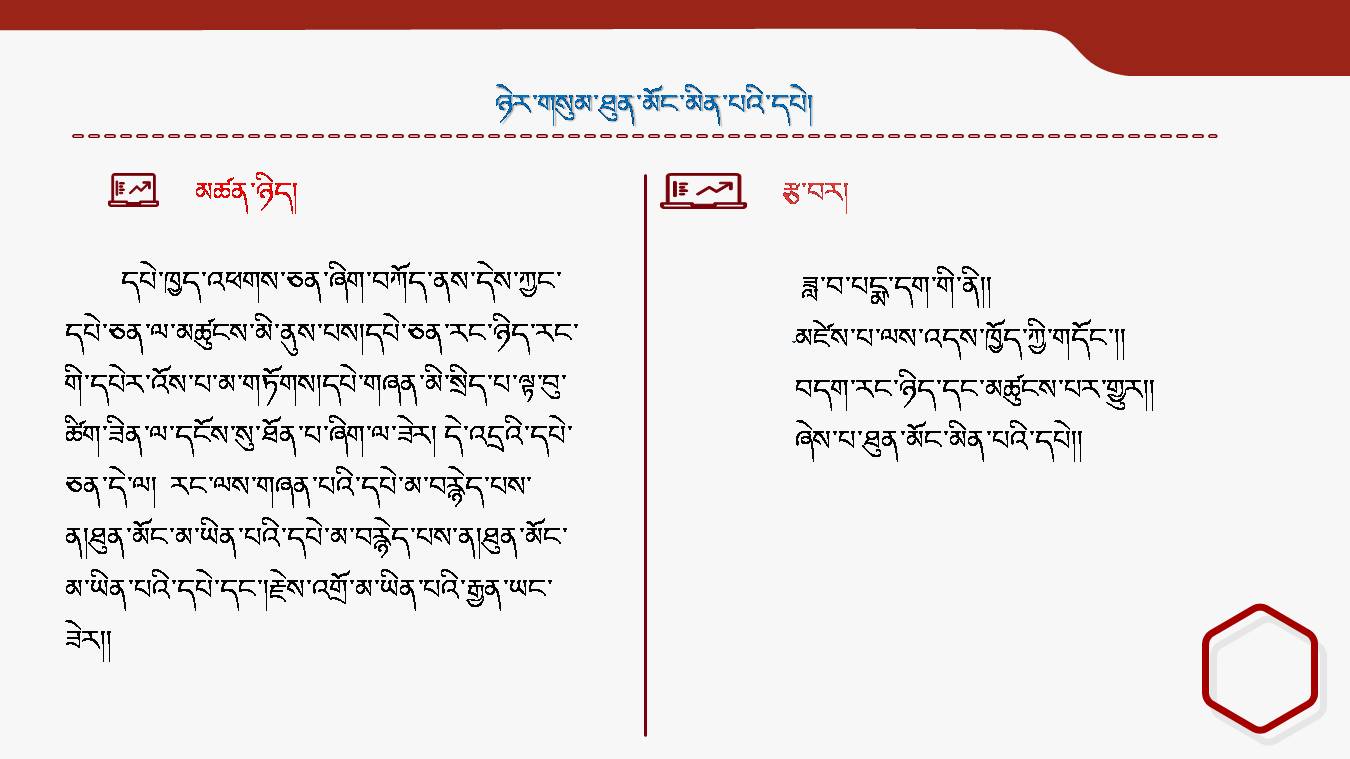 ཉེར་གསུམ་ཐུན་མོང་མིན་པའི་དཔེ།
མཚན་ཉིད།
དཔེ་ཁྱད་འཕགས་ཅན་ཞིག་བཀོད་ནས་དེས་ཀྱང་
དཔེ་ཅན་ལ་མཚུངས་མི་ནུས་པས།དཔེ་ཅན་རང་ཉིད་རང་
གི་དཔེར་འོས་པ་མ་གཏོགས།དཔེ་གཞན་མི་སྲིད་པ་ལྟ་བུ་
ཚིག་ཟིན་ལ་དངོས་སུ་ཐོན་པ་ཞིག་ལ་ཟེར། དེ་འདྲའི་དཔེ་
ཅན་དེ་ལ། རང་ལས་གཞན་པའི་དཔེ་མ་བརྙེད་པས་
ན།ཐུན་མོང་མ་ཡིན་པའི་དཔེ་མ་བརྙེད་པས་ན།ཐུན་མོང་
མ་ཡིན་པའི་དཔེ་དང་།རྗེས་འགྲོ་མ་ཡིན་པའི་རྒྱན་ཡང་
ཟེར།།
རྩ་བར།
ཟླ་བ་པདྨ་དག་གི་ནི།།
མཛེས་པ་ལས་འདས་ཁྱོད་ཀྱི་གདོང་།།
བདག་རང་ཉིད་དང་མཚུངས་པར་གྱུར།།
ཞེས་པ་ཐུན་མོང་མིན་པའི་དཔེ།།